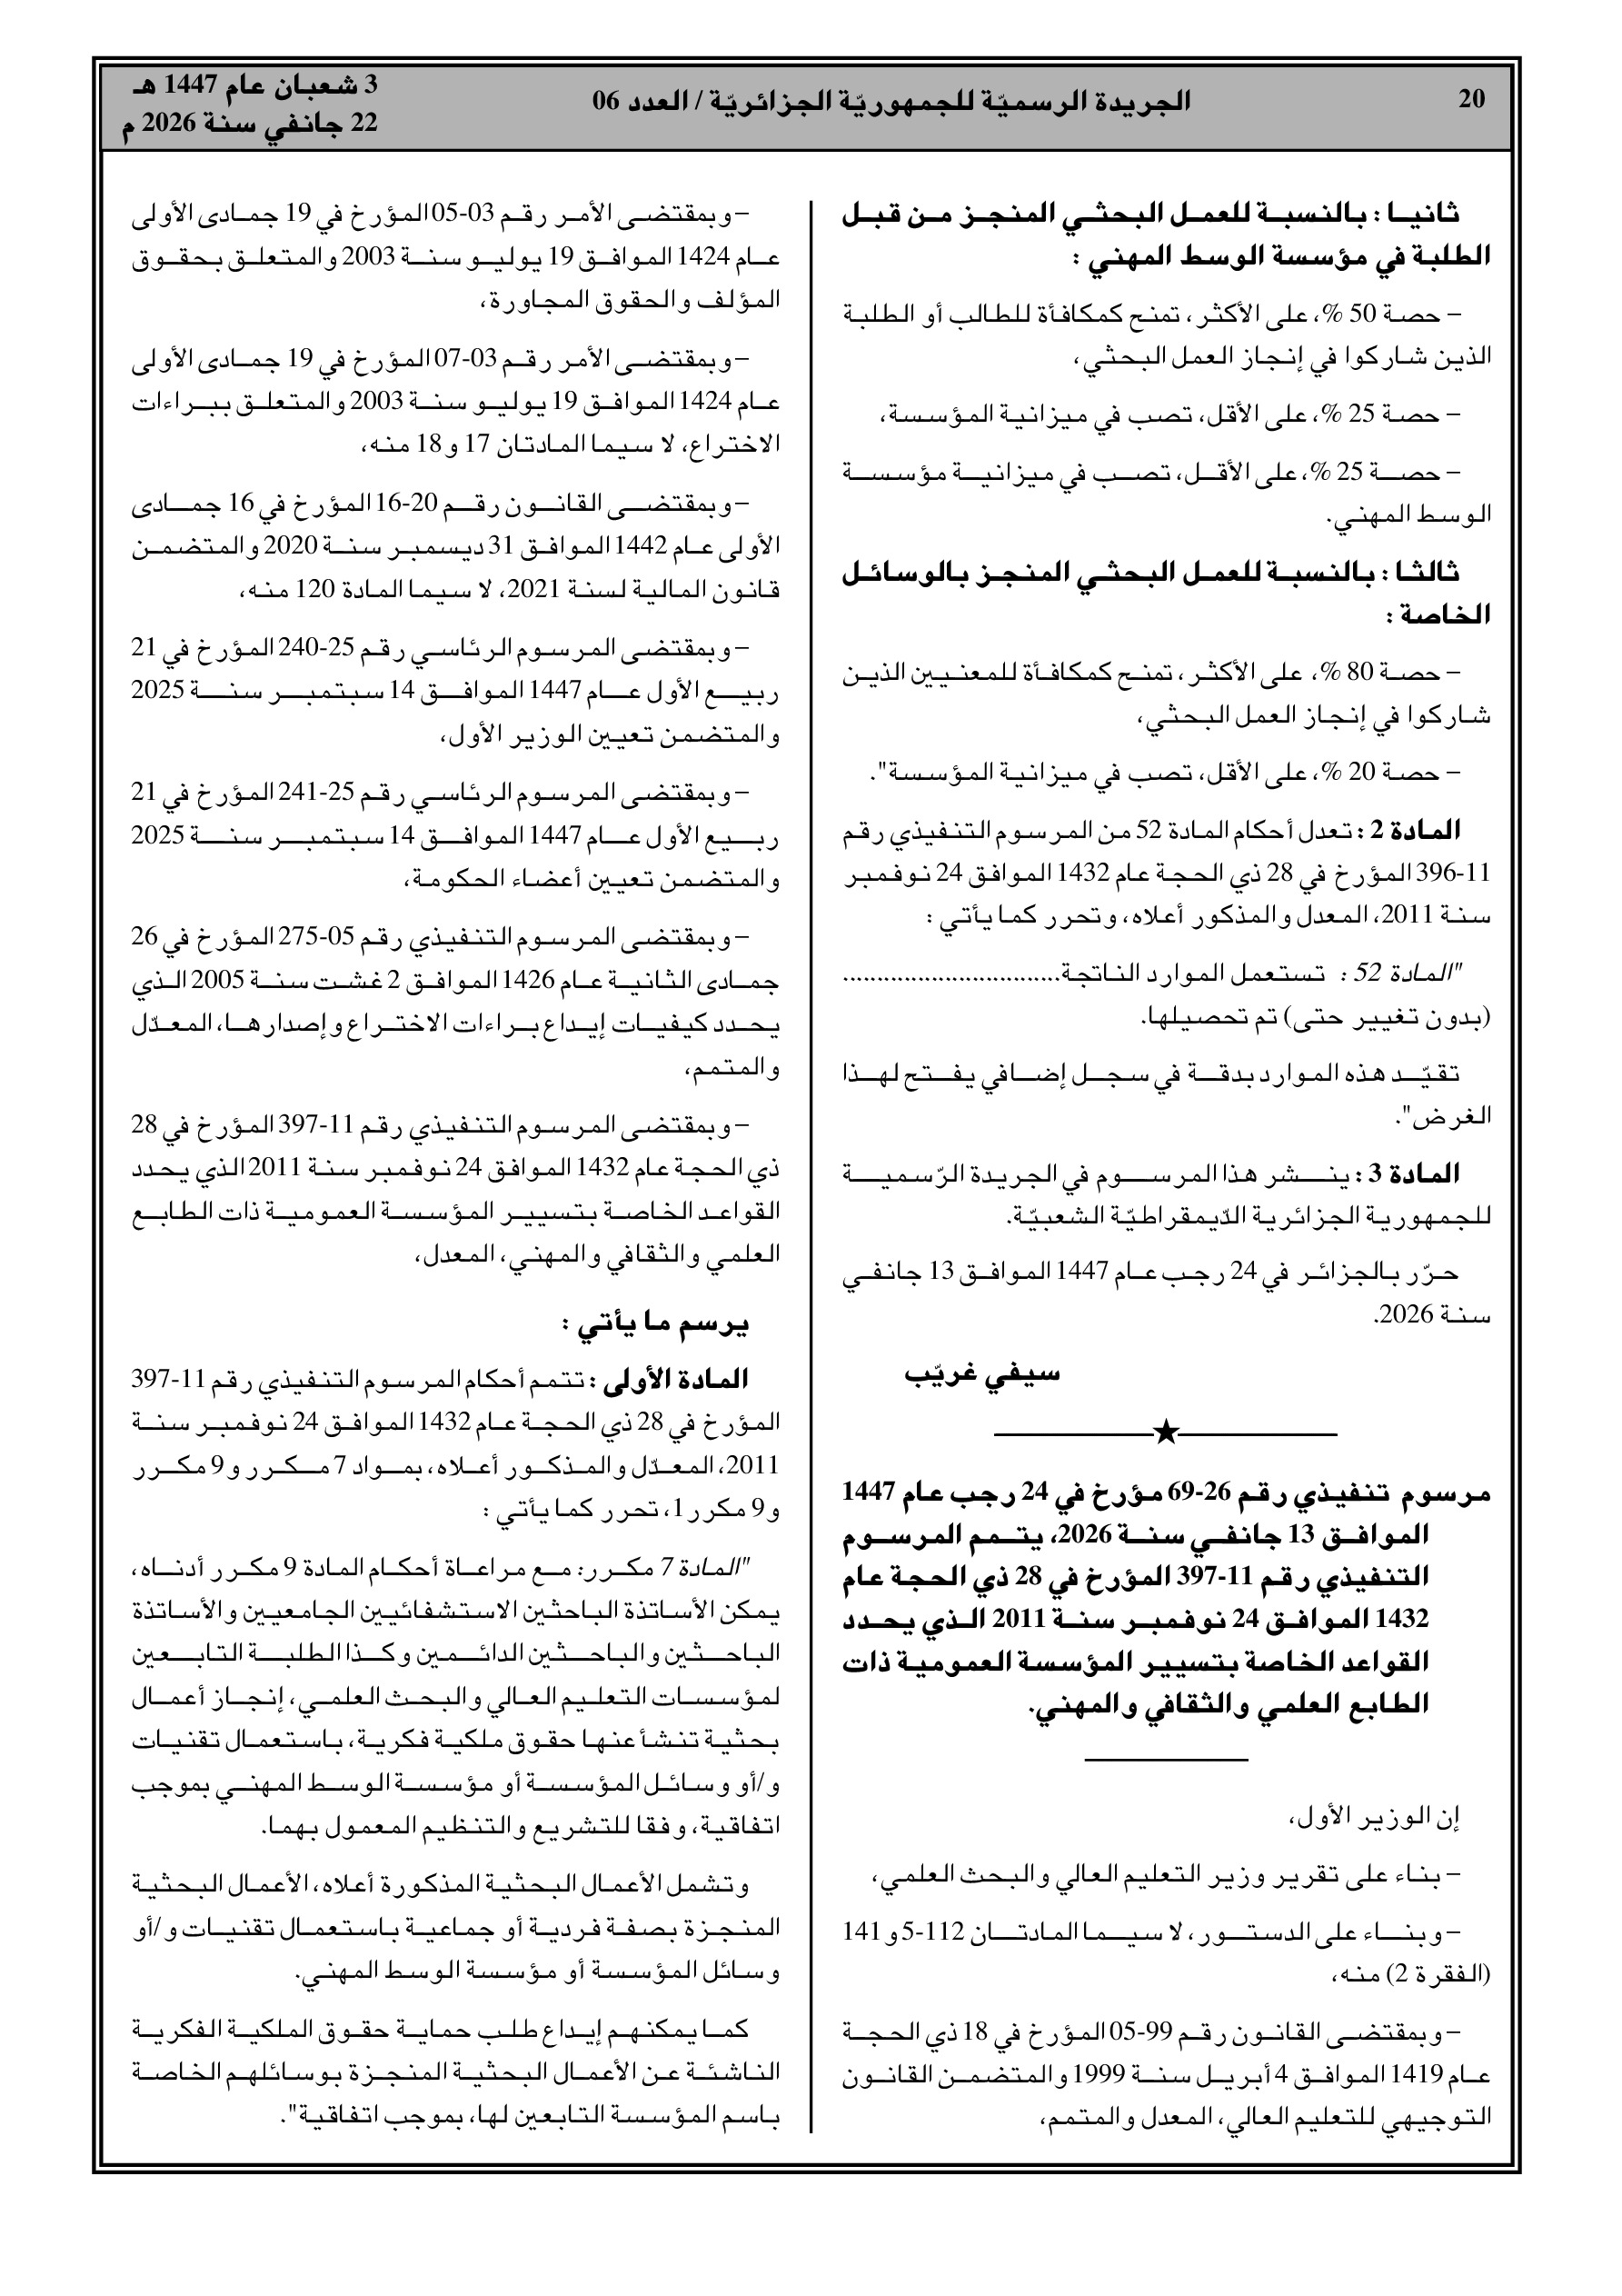 20
الجريدة الرسميّة للجمهوريّة الجزائريّة / العدد 06
3 شعبان عام 1447 هـ
22 جانفي سنة 2026 م
ثانيا : بالنسبة للعمل البحثي المنجز من قبل
الطلبة في مؤسسة الوسط المهني :
– حصة 50 %، على الأكثر، تمنح كمكافأة للطالب أو الطلبة
الذين شاركوا في إنجاز العمل البحثي،
– حصة 25 %، على الأقل، تصب في ميزانية المؤسسة،
– حصة 25 %، على الأقل، تصب في ميزانية مؤسسة
الوسط المهني.
ثالثا : بالنسبة للعمل البحثي المنجز بالوسائل
الخاصة :
– حصة 80 %، على الأكثر، تمنح كمكافأة للمعنيين الذين
شاركوا في إنجاز العمل البحثي،
– حصة 20 %، على الأقل، تصب في ميزانية المؤسسة".
المادة 2 : تعدل أحكام المادة 52 من المرسوم التنفيذي رقم
11-396 المؤرخ في 28 ذي الحجة عام 1432 الموافق 24 نوفمبر
سنة 2011، المعدل والمذكور أعلاه، وتحرر كما يأتي :
"المادة 52 : تستعمل الموارد الناتجة................................
(بدون تغيير حتى) تم تحصيلها.
تقيّد هذه الموارد بدقة في سجل إضافي يفتح لهذا
الغرض".
المادة 3 : ينشر هذا المرسوم في الجريدة الرّسمية
للجمهورية الجزائرية الدّيمقراطيّة الشعبيّة.
حرّر بالجزائر في 24 رجب عام 1447 الموافق 13 جانفي
سنة 2026.
سيفي غريّب
مرسوم تنفيذي رقم 26-69 مؤرخ في 24 رجب عام 1447
الموافق 13 جانفي سنة 2026، يتمم المرسوم
التنفيذي رقم 11-397 المؤرخ في 28 ذي الحجة عام
1432 الموافق 24 نوفمبر سنة 2011 الذي يحدد
القواعد الخاصة بتسيير المؤسسة العمومية ذات
الطابع العلمي والثقافي والمهني.
إن الوزير الأول،
– بناء على تقرير وزير التعليم العالي والبحث العلمي،
– وبناء على الدستور، لا سيما المادتان 112-5 و 141
(الفقرة 2) منه،
– وبمقتضى القانون رقم 99-05 المؤرخ في 18 ذي الحجة
عام 1419 الموافق 4 أبريل سنة 1999 والمتضمن القانون
التوجيهي للتعليم العالي، المعدل والمتمم،
– وبمقتضى الأمر رقم 03-05 المؤرخ في 19 جمادى الأولى
عام 1424 الموافق 19 يوليو سنة 2003 والمتعلق بحقوق
المؤلف والحقوق المجاورة،
– وبمقتضى الأمر رقم 03-07 المؤرخ في 19 جمادى الأولى
عام 1424 الموافق 19 يوليو سنة 2003 والمتعلق ببراءات
الاختراع، لا سيما المادتان 17 و 18 منه،
– وبمقتضى القانون رقم 20-16 المؤرخ في 16 جمادى
الأولى عام 1442 الموافق 31 ديسمبر سنة 2020 والمتضمن
قانون المالية لسنة 2021، لا سيما المادة 120 منه،
– وبمقتضى المرسوم الرئاسي رقم 25-240 المؤرخ في 21
ربيع الأول عام 1447 الموافق 14 سبتمبر سنة 2025
والمتضمن تعيين الوزير الأول،
– وبمقتضى المرسوم الرئاسي رقم 25-241 المؤرخ في 21
ربيع الأول عام 1447 الموافق 14 سبتمبر سنة 2025
والمتضمن تعيين أعضاء الحكومة،
– وبمقتضى المرسوم التنفيذي رقم 05-275 المؤرخ في 26
جمادى الثانية عام 1426 الموافق 2 غشت سنة 2005 الذي
يحدد كيفيات إيداع براءات الاختراع وإصدارها، المعدّل
والمتمم،
– وبمقتضى المرسوم التنفيذي رقم 11-397 المؤرخ في 28
ذي الحجة عام 1432 الموافق 24 نوفمبر سنة 2011 الذي يحدد
القواعد الخاصة بتسيير المؤسسة العمومية ذات الطابع
العلمي والثقافي والمهني، المعدل،
يرسم ما يأتي :
المادة الأولى : تتمم أحكام المرسوم التنفيذي رقم 11-397
المؤرخ في 28 ذي الحجة عام 1432 الموافق 24 نوفمبر سنة
2011، المعدّل والمذكور أعلاه، بمواد 7 مكرر و 9 مكرر
و 9 مكرر 1، تحرر كما يأتي :
"المادة 7 مكرر: مع مراعاة أحكام المادة 9 مكرر أدناه،
يمكن الأساتذة الباحثين الاستشفائيين الجامعيين والأساتذة
الباحثين والباحثين الدائمين وكذا الطلبة التابعين
لمؤسسات التعليم العالي والبحث العلمي، إنجاز أعمال
بحثية تنشأ عنها حقوق ملكية فكرية، باستعمال تقنيات
و/أو وسائل المؤسسة أو مؤسسة الوسط المهني بموجب
اتفاقية، وفقا للتشريع والتنظيم المعمول بهما.
وتشمل الأعمال البحثية المذكورة أعلاه، الأعمال البحثية
المنجزة بصفة فردية أو جماعية باستعمال تقنيات و/أو
وسائل المؤسسة أو مؤسسة الوسط المهني.
كما يمكنهم إيداع طلب حماية حقوق الملكية الفكرية
الناشئة عن الأعمال البحثية المنجزة بوسائلهم الخاصة
باسم المؤسسة التابعين لها، بموجب اتفاقية".